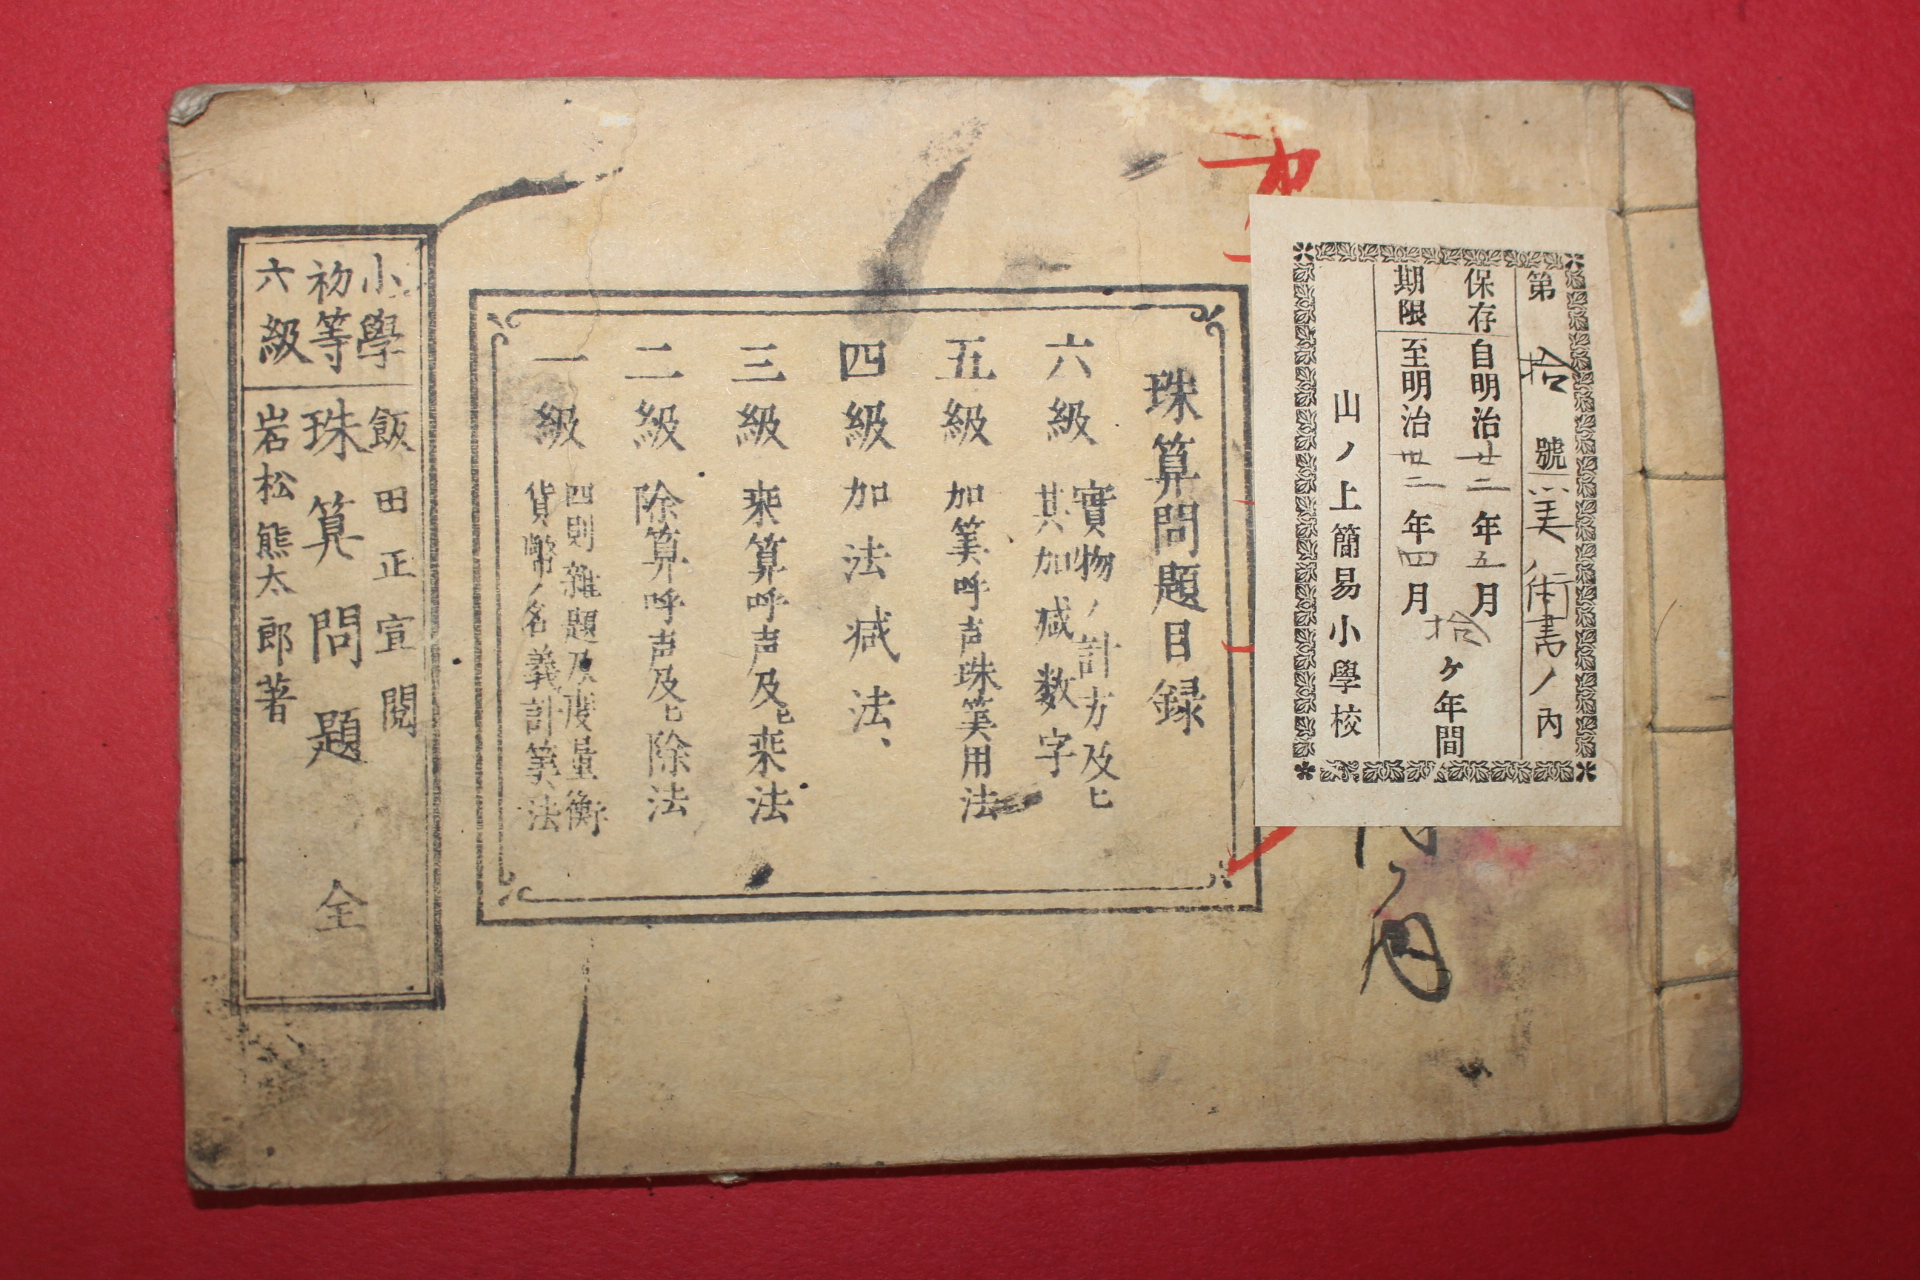 第拾號美術書ノ内
保存期限
自明治廿二年五月
至明治卅二年四月
拾ヶ年間
山ノ上簡易小學校
珠算問題目録
六級 實物ノ計方及ヒ
其加減数字
五級 加筭呼声珠筭用法
四級 加法減法、
三級 乗算呼声及ヒ乗法
二級 除算呼声及ヒ除法
一級 四則雜題及度量衡
貨幣ノ名義計筭法
小學
初等
六級
飯田正宣閲
珠算問題 全
岩松熊太郎著